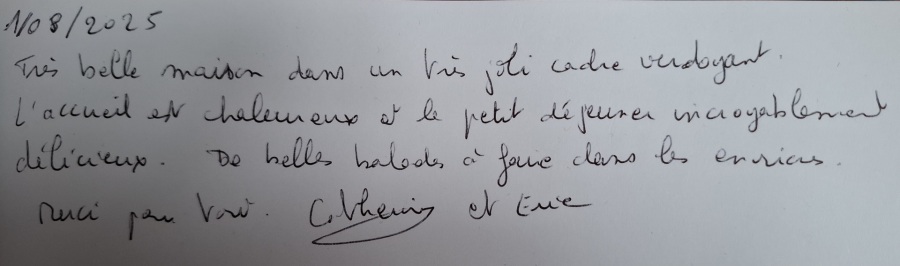 1/08/2025
Très belle maison dans un très joli cadre verdoyant.
L'accueil est chaleureux et le petit déjeuner incroyablement
délicieux. De belles balades à faire dans les environs.
Merci pour tout. Catherine et Eric